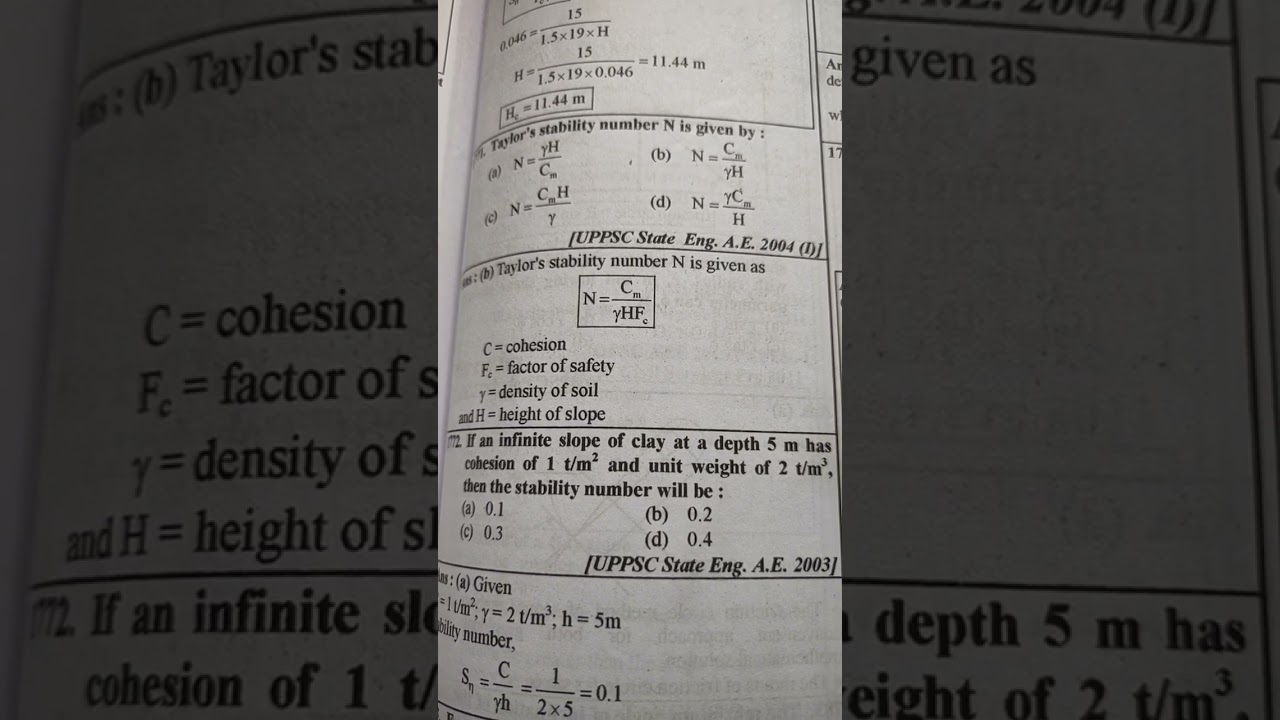 0.046 = 15 / 1.5×19×H
H = 15 / 1.5×19×0.046 = 11.44 m
H_c = 11.44 m
Taylor's stability number N is given by :
(a) N = γH / C_m (b) N = C_m / γH
(c) N = C_m H / γ (d) N = γC_m / H
[UPPSC State Eng. A.E. 2004 (I)]
: (b) Taylor's stability number N is given as
N = C_m / γHF_c
C = cohesion
F_c = factor of safety
γ = density of soil
and H = height of slope
1772. If an infinite slope of clay at a depth 5 m has
cohesion of 1 t/m², and unit weight of 2 t/m³,
then the stability number will be :
(a) 0.1 (b) 0.2
(c) 0.3 (d) 0.4
[UPPSC State Eng. A.E. 2003]
: (a) Given
= 1 t/m²; γ = 2 t/m³; h = 5m
number,
S_η = C / γh = 1 / 2×5 = 0.1